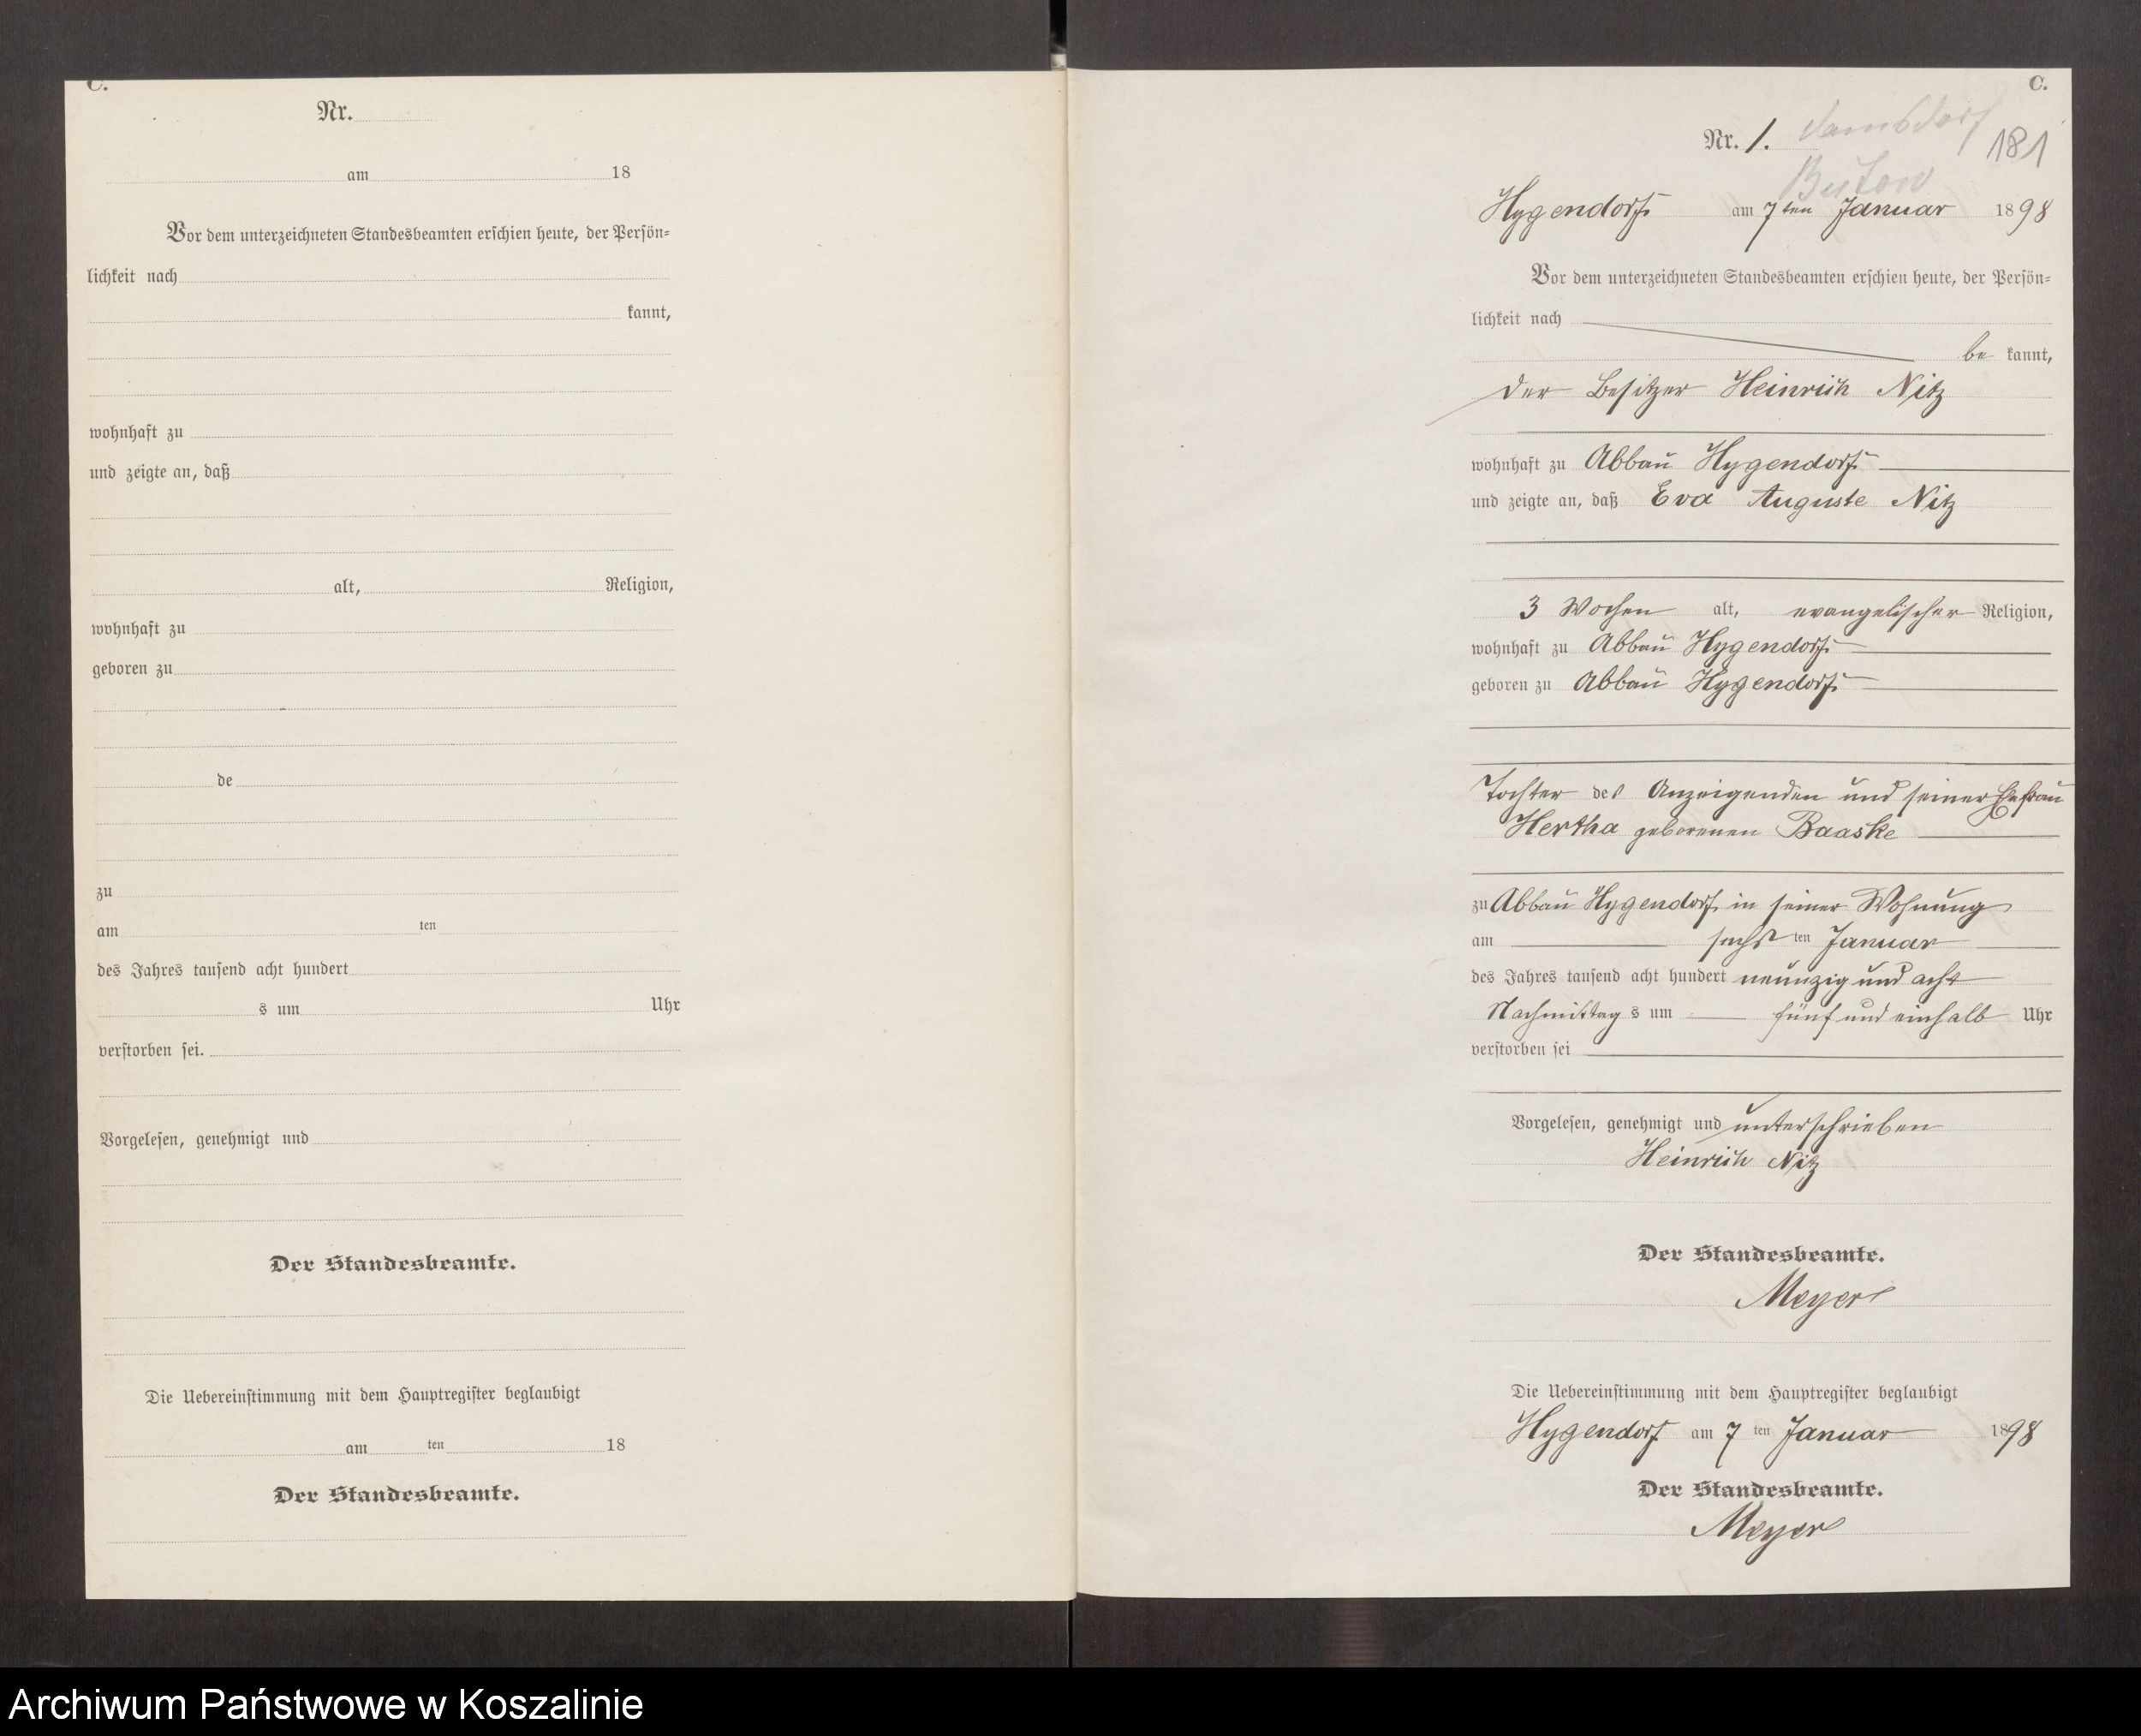 C.
Nr.
am 18
Vor dem unterzeichneten Standesbeamten erschien heute, der Persön=
lichkeit nach
kannt,
wohnhaft zu
und zeigte an, daß
alt, Religion,
wohnhaft zu
geboren zu
de
zu
am ten
des Jahres tausend acht hundert
s um Uhr
verstorben sei.
Vorgelesen, genehmigt und
Der Standesbeamte.
Die Uebereinstimmung mit dem Hauptregister beglaubigt
am ten 18
Der Standesbeamte.
C.
Nr. 1. Damsdorf
181
Bütow
Hygendorf am 7ten Januar 1898
Vor dem unterzeichneten Standesbeamten erschien heute, der Persön=
lichkeit nach
be kannt,
der Besitzer Heinrich Nitz
wohnhaft zu Abbau Hygendorf
und zeigte an, daß Eva Auguste Nitz
3 Wochen alt, evangelischer Religion,
wohnhaft zu Abbau Hygendorf
geboren zu Abbau Hygendorf
Tochter des Anzeigenden und seiner Ehefrau
Hertha geborenen Baaske
zu Abbau Hygendorf in seiner Wohnung
am sechs ten Januar
des Jahres tausend acht hundert neunzig und acht
Nachmittag s um fünf und einhalb Uhr
verstorben sei
Vorgelesen, genehmigt und unterschrieben
Heinrich Nitz
Der Standesbeamte.
Meyer
Die Uebereinstimmung mit dem Hauptregister beglaubigt
Hygendorf am 7 ten Januar 1898
Der Standesbeamte.
Meyer
Archiwum Państwowe w Koszalinie